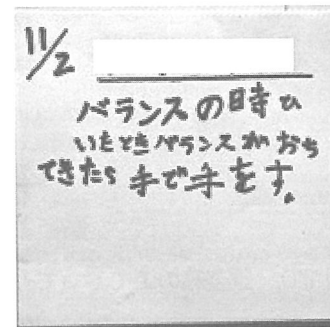 11/2
バランスの時ひ
いたときバランスがおち
てきたら手で手をす。